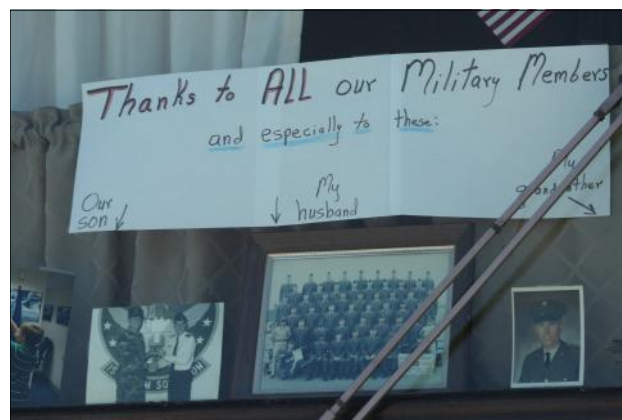 Thanks to ALL our Military Members
and especially to these:
Our son
My husband
My